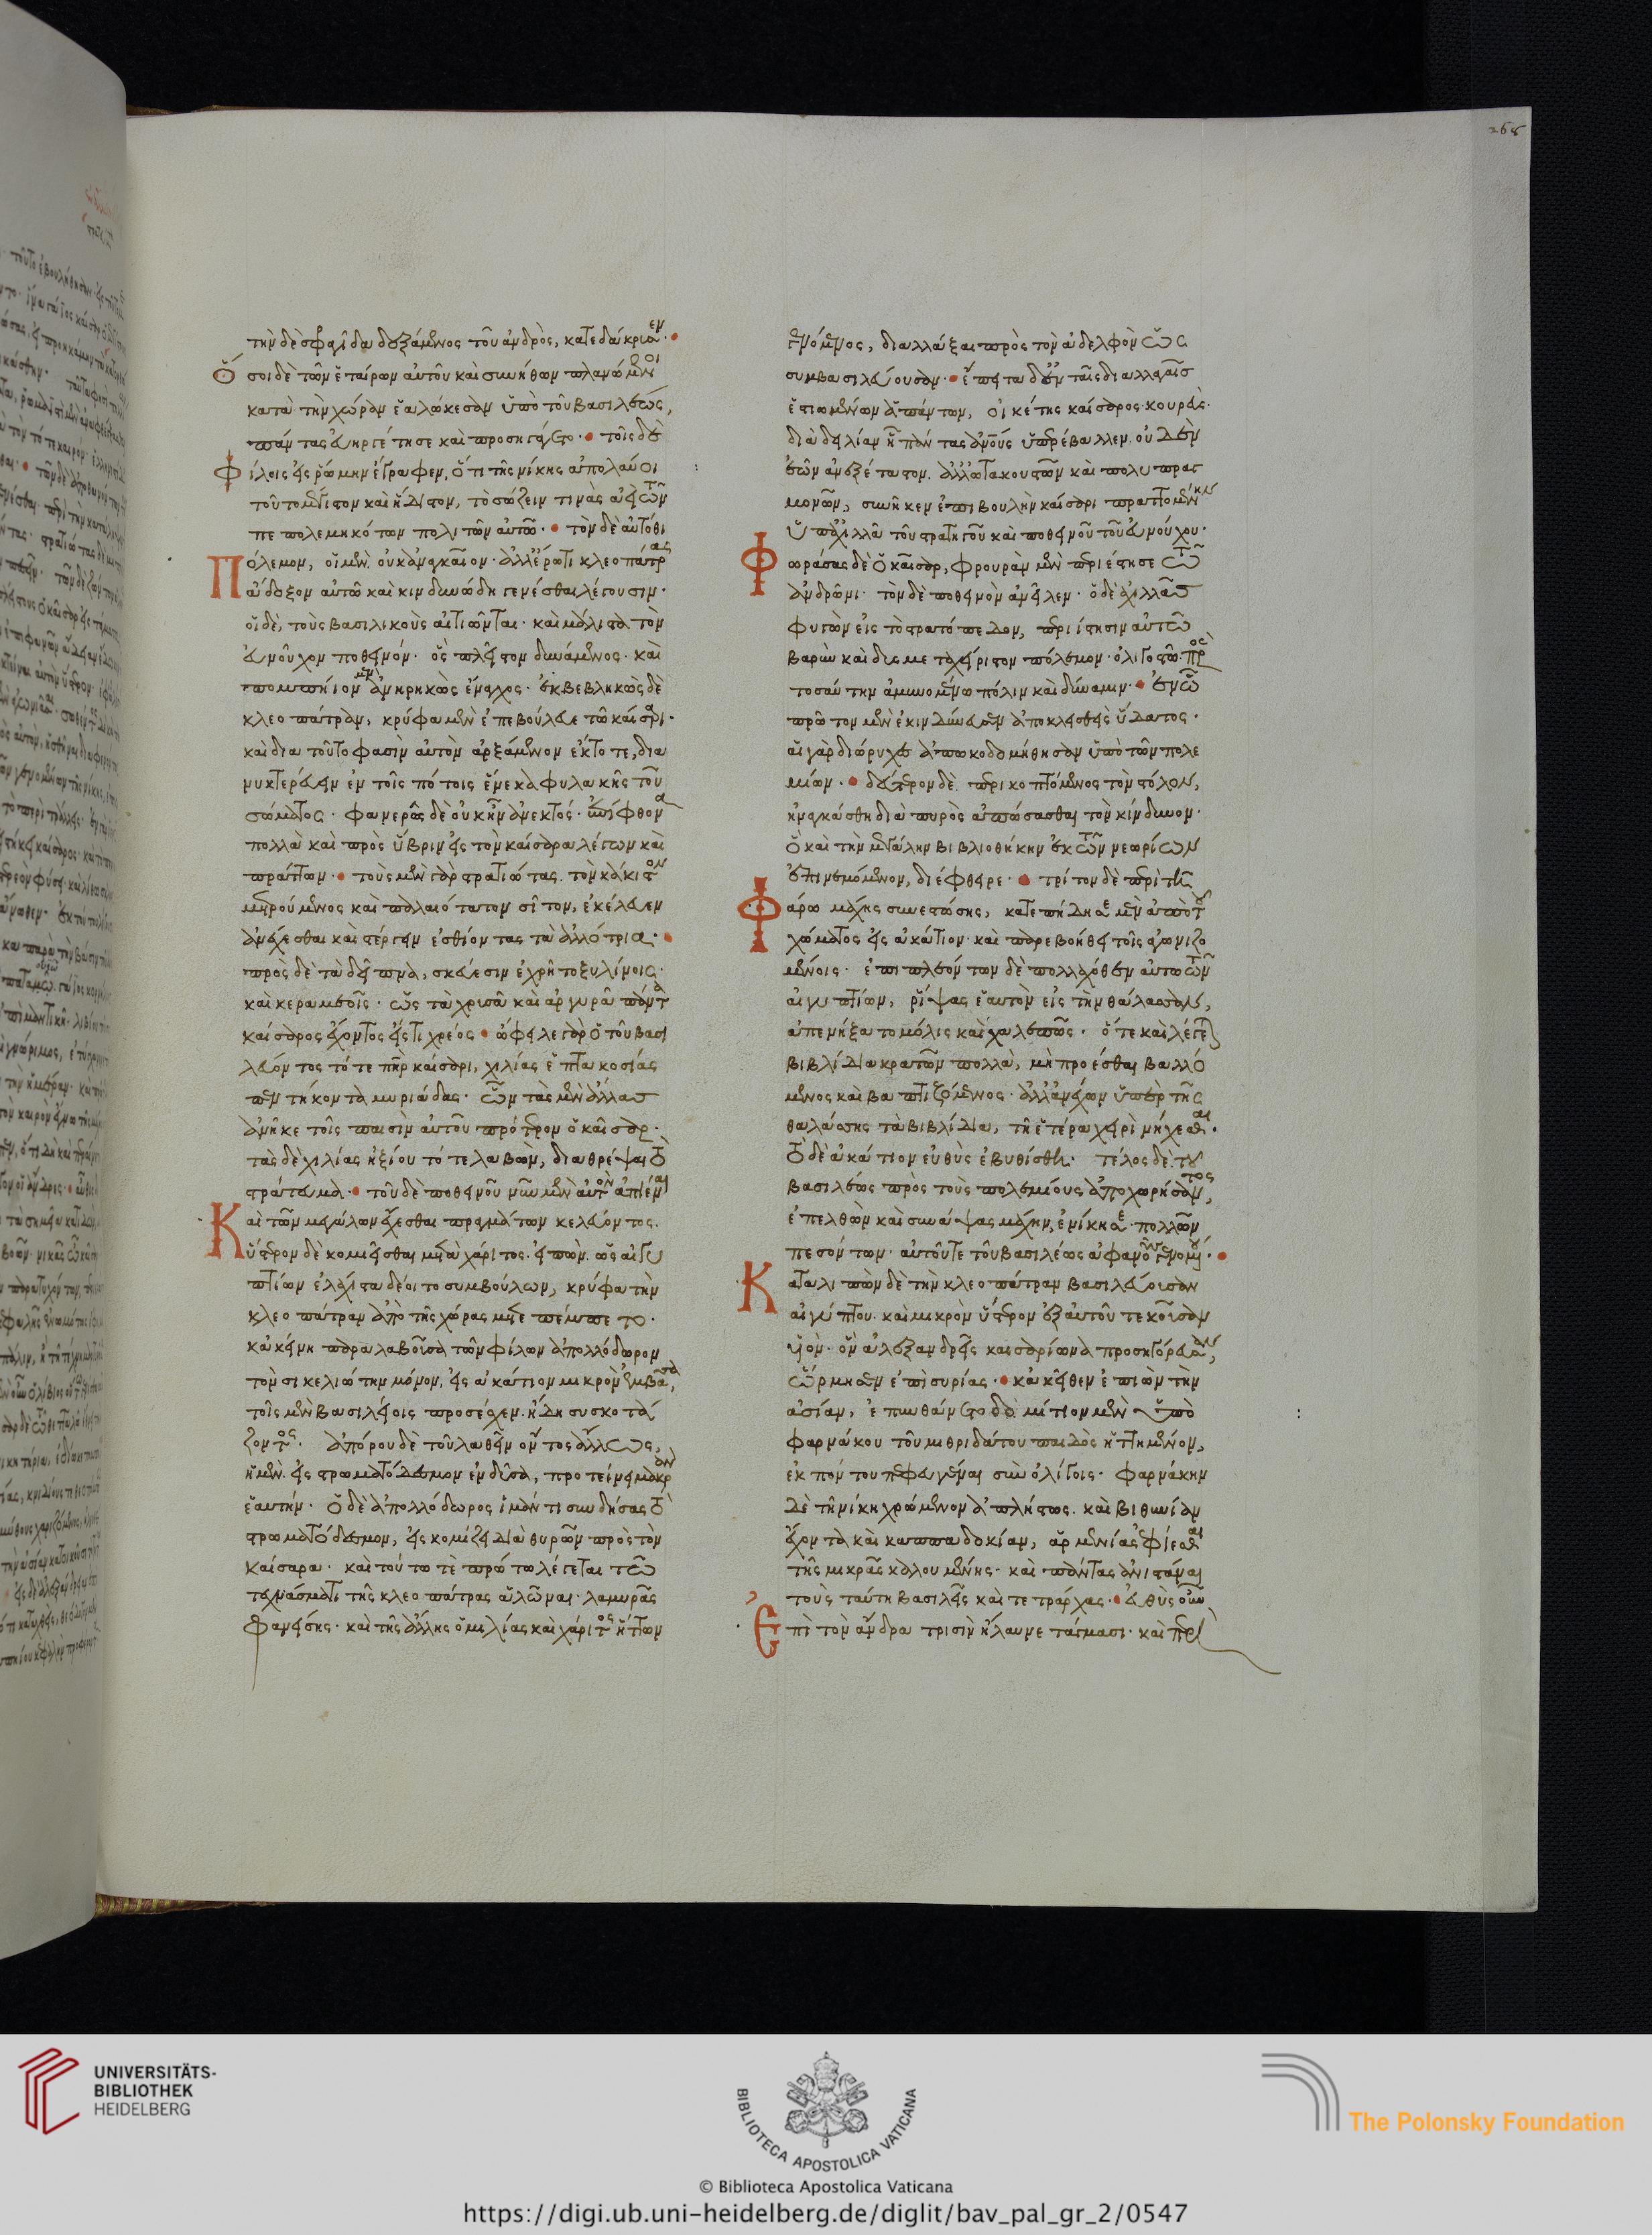 268
τὴν δὲ σφραγῖδα δεξάμενος τοῦ ἀνδρὸς, κατεδάκρυσεν·
ὅσοι δὲ τῶν ἑταίρων αὐτοῦ καὶ συνήθων πλανώμενοι
κατὰ τὴν χώραν ἑαλώκεσαν ὑπὸ τοῦ βασιλέως,
πάντας εὐηργέτησε καὶ προσηγάγετο· τοῖς δὲ
φίλοις εἰς ῥώμην ἔγραφεν, ὅτι τῆς νίκης ἀπολαύοι
τοῦτο μέγιστον καὶ ἥδιστον, τὸ σώζειν τινὰς ἀεὶ τῶν
πεπολεμηκότων πολιτῶν αὐτῶ· τὸν δὲ αὐτόθι
πόλεμον, οἱ μὲν οὐκ ἀναγκαῖον· ἀλλ' ἔρωτι κλεοπάτρας
ἄδοξον αὐτῶ καὶ κινδυνώδη γενέσθαι λέγουσιν·
οἱ δὲ, τοὺς βασιλικοὺς αἰτιῶνται· καὶ μάλιστα τὸν
εὐνοῦχον ποθεινόν· ὃς πλεῖστον δυνάμενος· καὶ
πομπήιον μὲν ἀνηρηκὼς ἔναγχος· ἐκβεβληκὼς δὲ
κλεοπάτραν, κρύφα μὲν ἐπεβούλευε τῶ καίσαρι·
καὶ διὰ τοῦτο φασὶν αὐτὸν ἀρξάμενον ἔκτοτε, δια
νυκτερεύειν ἐν τοῖς πότοις ἕνεκα φυλακῆς τοῦ
σώματος· φανερῶς δὲ οὐκ ἦν ἀνεκτός· ἐπίφθονα
πολλὰ καὶ πρὸς ὕβριν εἰς τὸν καίσαρα λέγων καὶ
πράττων· τοὺς μὲν γὰρ στρατιώτας τὸν κάκιστον
μετρούμενος καὶ παλαιότατον σῖτον, ἐκέλευεν
ἀνέχεσθαι καὶ στέργειν ἐσθίοντας τὰ ἀλλότρια·
πρὸς δὲ τὰ δεῖπνα, σκεύεσιν ἐχρῆτο ξυλίνοις·
καὶ κεραμεοῖς· ὡς τὰ χρυσᾶ καὶ ἀργυρᾶ πάντα
καίσαρος ἔχοντος εἴς τι χρέος· ὤφειλε γὰρ ὁ τοῦ βασι
λεύοντος τότε πατὴρ καίσαρι, χιλίας ἑπτακοσίας
πεντήκοντα μυριάδας· ὧν τὰς μὲν ἄλλας
ἀνῆκε τοῖς παισὶν αὐτοῦ πρότερον ὁ καῖσαρ·
τὰς δὲ χιλίας ἠξίου τότε λαβὼν, διαθρέψαι τὸ
στράτευμα· τοῦ δὲ ποθεινοῦ νῦν μὲν αὐτὸν ἀπιέναι
καὶ τῶν μεγάλων ἔχεσθαι πραγμάτων κελεύοντος·
ὕστερον δὲ κομιεῖσθαι μετὰ χάριτος· εἰπὼν, ὡς αἰγυ
πτίων ἐλάχιστα δέοιτο συμβούλων, κρύφα τὴν
κλεοπάτραν ἀπὸ τῆς χώρας μετεπέμπετο·
κἀκείνη παραλαβοῦσα τῶν φίλων ἀπολλόδωρον
τὸν σικελιώτην μόνον, εἰς ἀκάτιον μικρὸν ἐμβᾶσα,
τοῖς μὲν βασιλείοις προσέσχεν ἤδη συσκοτά
ζοντος· ἀπόρου δὲ τοῦ λαθεῖν ὄντος ἄλλως,
ἡ μὲν εἰς στρωματόδεσμον ἐνδῦσα, προτείνει μακρὰν
ἑαυτήν· ὁ δὲ ἀπολλόδωρος ἱμάντι συνδήσας τὸ
στρωματόδεσμον, εἰσκομίζει διὰ θυρῶν πρὸς τὸν
καίσαρα· καὶ τούτω τὲ πρώτω λέγεται τῶ
τεχνάσματι τῆς κλεοπάτρας ἁλῶναι· λαμυρᾶς
φανείσης· καὶ τῆς ἄλλης ὁμιλίας καὶ χάριτος ἥττων
γενόμενος, διαλλάξαι πρὸς τὸν ἀδελφὸν ὡς
συμβασιλεύουσαν· ἔπειτα δ' ἐν ταῖς διαλλαγαῖς
ἑστιωμένων ἁπάντων, οἰκέτης καίσαρος κουρεὺς
διὰ δειλίαν ἧ πάντας ἀν(θρώπ)ους ὑπερέβαλλεν οὐδὲν
ἐῶν ἀνεξέταστον· ἀλλ' ὠτακουστῶν καὶ πολυπραγ
μονῶν, συνῆκεν ἐπιβουλὴν καίσαρι πραττομένην
ὑπ' ἀχιλλᾶ τοῦ στρατηγοῦ καὶ ποθεινοῦ τοῦ εὐνούχου·
φωράσας δὲ ὁ καῖσαρ, φρουρὰν μὲν περιέστησε τῶ
ἀνδρῶνι· τὸν δὲ ποθεινὸν ἀνεῖλεν· ὁ δὲ ἀχιλλᾶς
φυγὼν εἰς τὸ στρατόπεδον, περιίστησιν αὐτῶ
βαρὺν καὶ δυσμεταχείριστον πόλεμον· ὀλιγοστῶ πρὸς
τοσαύτην ἀμυνομένω πόλιν καὶ δύναμιν· ἐν ὧ
πρῶτον μὲν ἐκινδύνευσεν ἀποκλεισθεὶς ὕδατος·
αἱ γὰρ διώρυχες ἀπωκοδομήθησαν ὑπὸ τῶν πολε
μίων· δεύτερον δὲ περικοπτόμενος τὸν στόλον,
ἠναγκάσθη διὰ πυρὸς ἀπώσασθαι τὸν κίνδυνον·
ὃ καὶ τὴν μεγάλην βιβλιοθήκην ἐκ τῶν νεωρίων
ἐπινεμόμενον, διέφθειρε· τρίτον δὲ περὶ τῆ
φάρω μάχης συνεστώσης, κατεπήδησε μὲν ἀπὸ τοῦ
χώματος εἰς ἀκάτιον· καὶ παρεβοήθει τοῖς ἀγωνιζο
μένοις· ἐπιπλεόντων δὲ πολλαχόθεν αὐτῶ τῶν
αἰγυπτίων, ῥίψας ἑαυτὸν εἰς τὴν θάλασσαν,
ἀπενήξατο μόλις καὶ χαλεπῶς· ὅτε καὶ λέγεται
βιβλίδια κρατῶν πολλὰ, μὴ προέσθαι βαλλό
μενος καὶ βαπτιζόμενος· ἀλλ' ἀνέχων ὑπὲρ τῆς
θαλάσσης τὰ βιβλίδια, τῆ ἑτέρα χειρὶ νήχεσθαι·
τὸ δὲ ἀκάτιον εὐθὺς ἐβυθίσθη· τέλος δὲ τοῦ
βασιλέως πρὸς τοὺς πολεμίους ἀποχωρήσαντος,
ἐπελθὼν καὶ συνάψας μάχην, ἐνίκησε· πολλῶν
πεσόντων· αὐτοῦ τε τοῦ βασιλέως ἀφανοῦς γενομένου·
καταλιπὼν δὲ τὴν κλεοπάτραν βασιλεύουσαν
αἰγύπτου· καὶ μικρὸν ὕστερον ἐξ αὐτοῦ τεκοῦσαν
υἱόν· ὃν ἀλεξανδρεῖς καισαρίωνα προσηγόρευον,
ὥρμησεν ἐπὶ συρίας· κἀκεῖθεν ἐπιὼν τὴν
ἀσίαν, ἐπυνθάνετο δομίτιον μὲν ὑπὸ
φαρνάκου τοῦ μιθριδάτου παιδὸς ἡττημένον,
ἐκ πόντου πεφευγέναι σὺν ὀλίγοις· φαρνάκην
δὲ τῆ νίκη χρώμενον ἀπλήστως· καὶ βιθυνίαν
ἔχοντα καὶ καππαδοκίαν, ἀρμενίας ἐφίεσθαι
τῆς μικρᾶς καλουμένης· καὶ πάντας ἀνιστάναι
τοὺς ταύτη βασιλεῖς καὶ τετράρχας· εὐθὺς οὖν
ἐπὶ τὸν ἄνδρα τρισὶν ἤλαυνε τάγμασι· καὶ περὶ
UNIVERSITÄTS-
BIBLIOTHEK
HEIDELBERG
BIBLIOTECA APOSTOLICA VATICANA
The Polonsky Foundation
© Biblioteca Apostolica Vaticana
https://digi.ub.uni-heidelberg.de/diglit/bav_pal_gr_2/0547